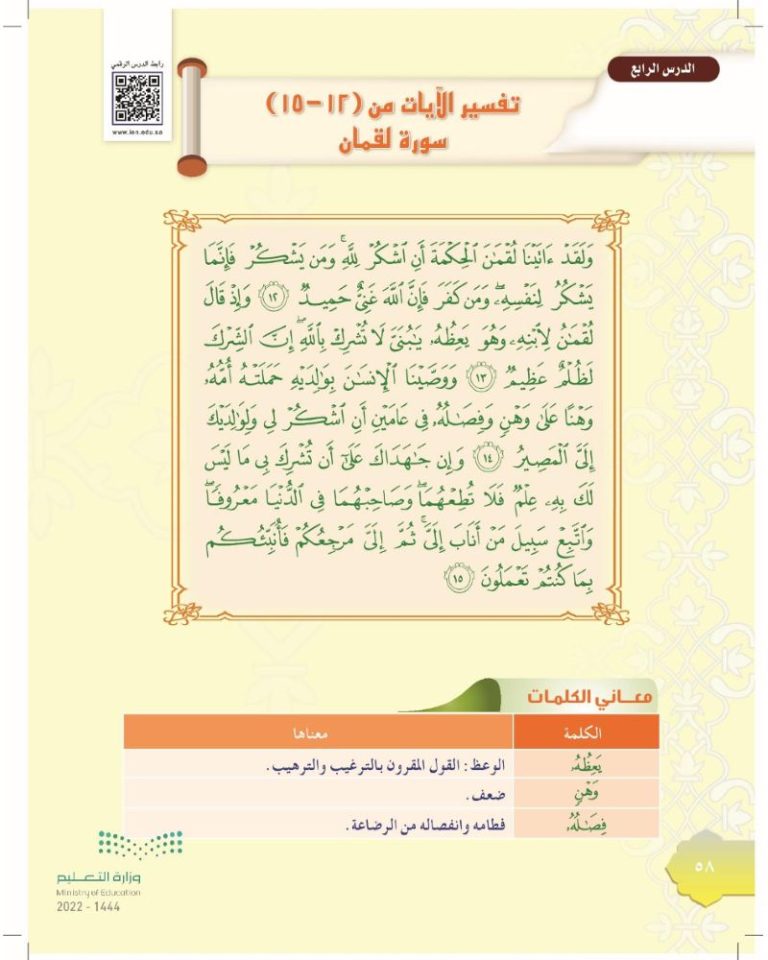 الدرس الرابع
رابط الدرس الرقمي
www.ien.edu.sa
تفسير الآيات من (١٢-١٥)
سورة لقمان
وَلَقَدْ ءَاتَيْنَا لُقْمَٰنَ الْحِكْمَةَ أَنِ اشْكُرْ لِلَّهِ ۚ وَمَن يَشْكُرْ فَإِنَّمَا
يَشْكُرُ لِنَفْسِهِۦ ۖ وَمَن كَفَرَ فَإِنَّ اللَّهَ غَنِىٌّ حَمِيدٌ ١٢ وَإِذْ قَالَ
لُقْمَٰنُ لِابْنِهِۦ وَهُوَ يَعِظُهُۥ يَٰبُنَىَّ لَا تُشْرِكْ بِاللَّهِ ۖ إِنَّ الشِّرْكَ
لَظُلْمٌ عَظِيمٌ ١٣ وَوَصَّيْنَا الْإِنسَٰنَ بِوَٰلِدَيْهِ حَمَلَتْهُ أُمُّهُۥ
وَهْنًا عَلَىٰ وَهْنٍ وَفِصَٰلُهُۥ فِى عَامَيْنِ أَنِ اشْكُرْ لِى وَلِوَٰلِدَيْكَ
إِلَىَّ الْمَصِيرُ ١٤ وَإِن جَٰهَدَاكَ عَلَىٰٓ أَن تُشْرِكَ بِى مَا لَيْسَ
لَكَ بِهِۦ عِلْمٌ فَلَا تُطِعْهُمَا ۖ وَصَاحِبْهُمَا فِى الدُّنْيَا مَعْرُوفًا ۖ
وَاتَّبِعْ سَبِيلَ مَنْ أَنَابَ إِلَىَّ ۚ ثُمَّ إِلَىَّ مَرْجِعُكُمْ فَأُنَبِّئُكُم
بِمَا كُنتُمْ تَعْمَلُونَ ١٥
معـــاني الكلمات
الكلمة معناها
يَعِظُهُۥ الوعظ: القول المقرون بالترغيب والترهيب.
وَهْنٍ ضعف.
فِصَٰلُهُۥ فطامه وانفصاله من الرضاعة.
٥٨
وزارة التعـــليم
Ministry of Education
2022 - 1444